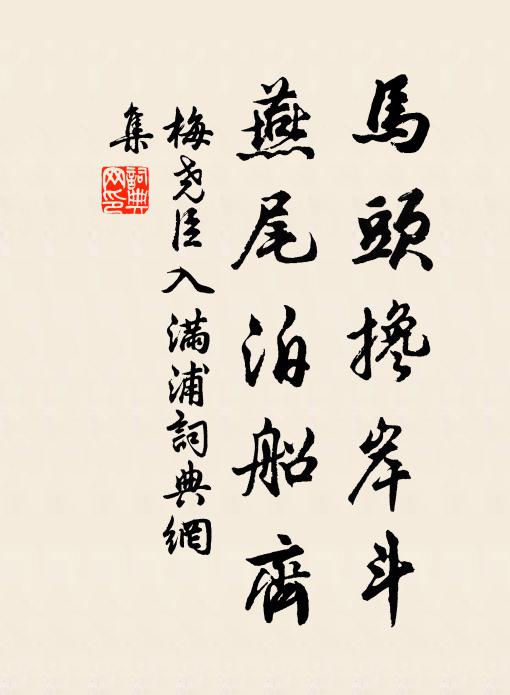 馬頭搀岸斗
燕尾泊船齊
梅尧臣入滿浦詞典網
集
詞典网印